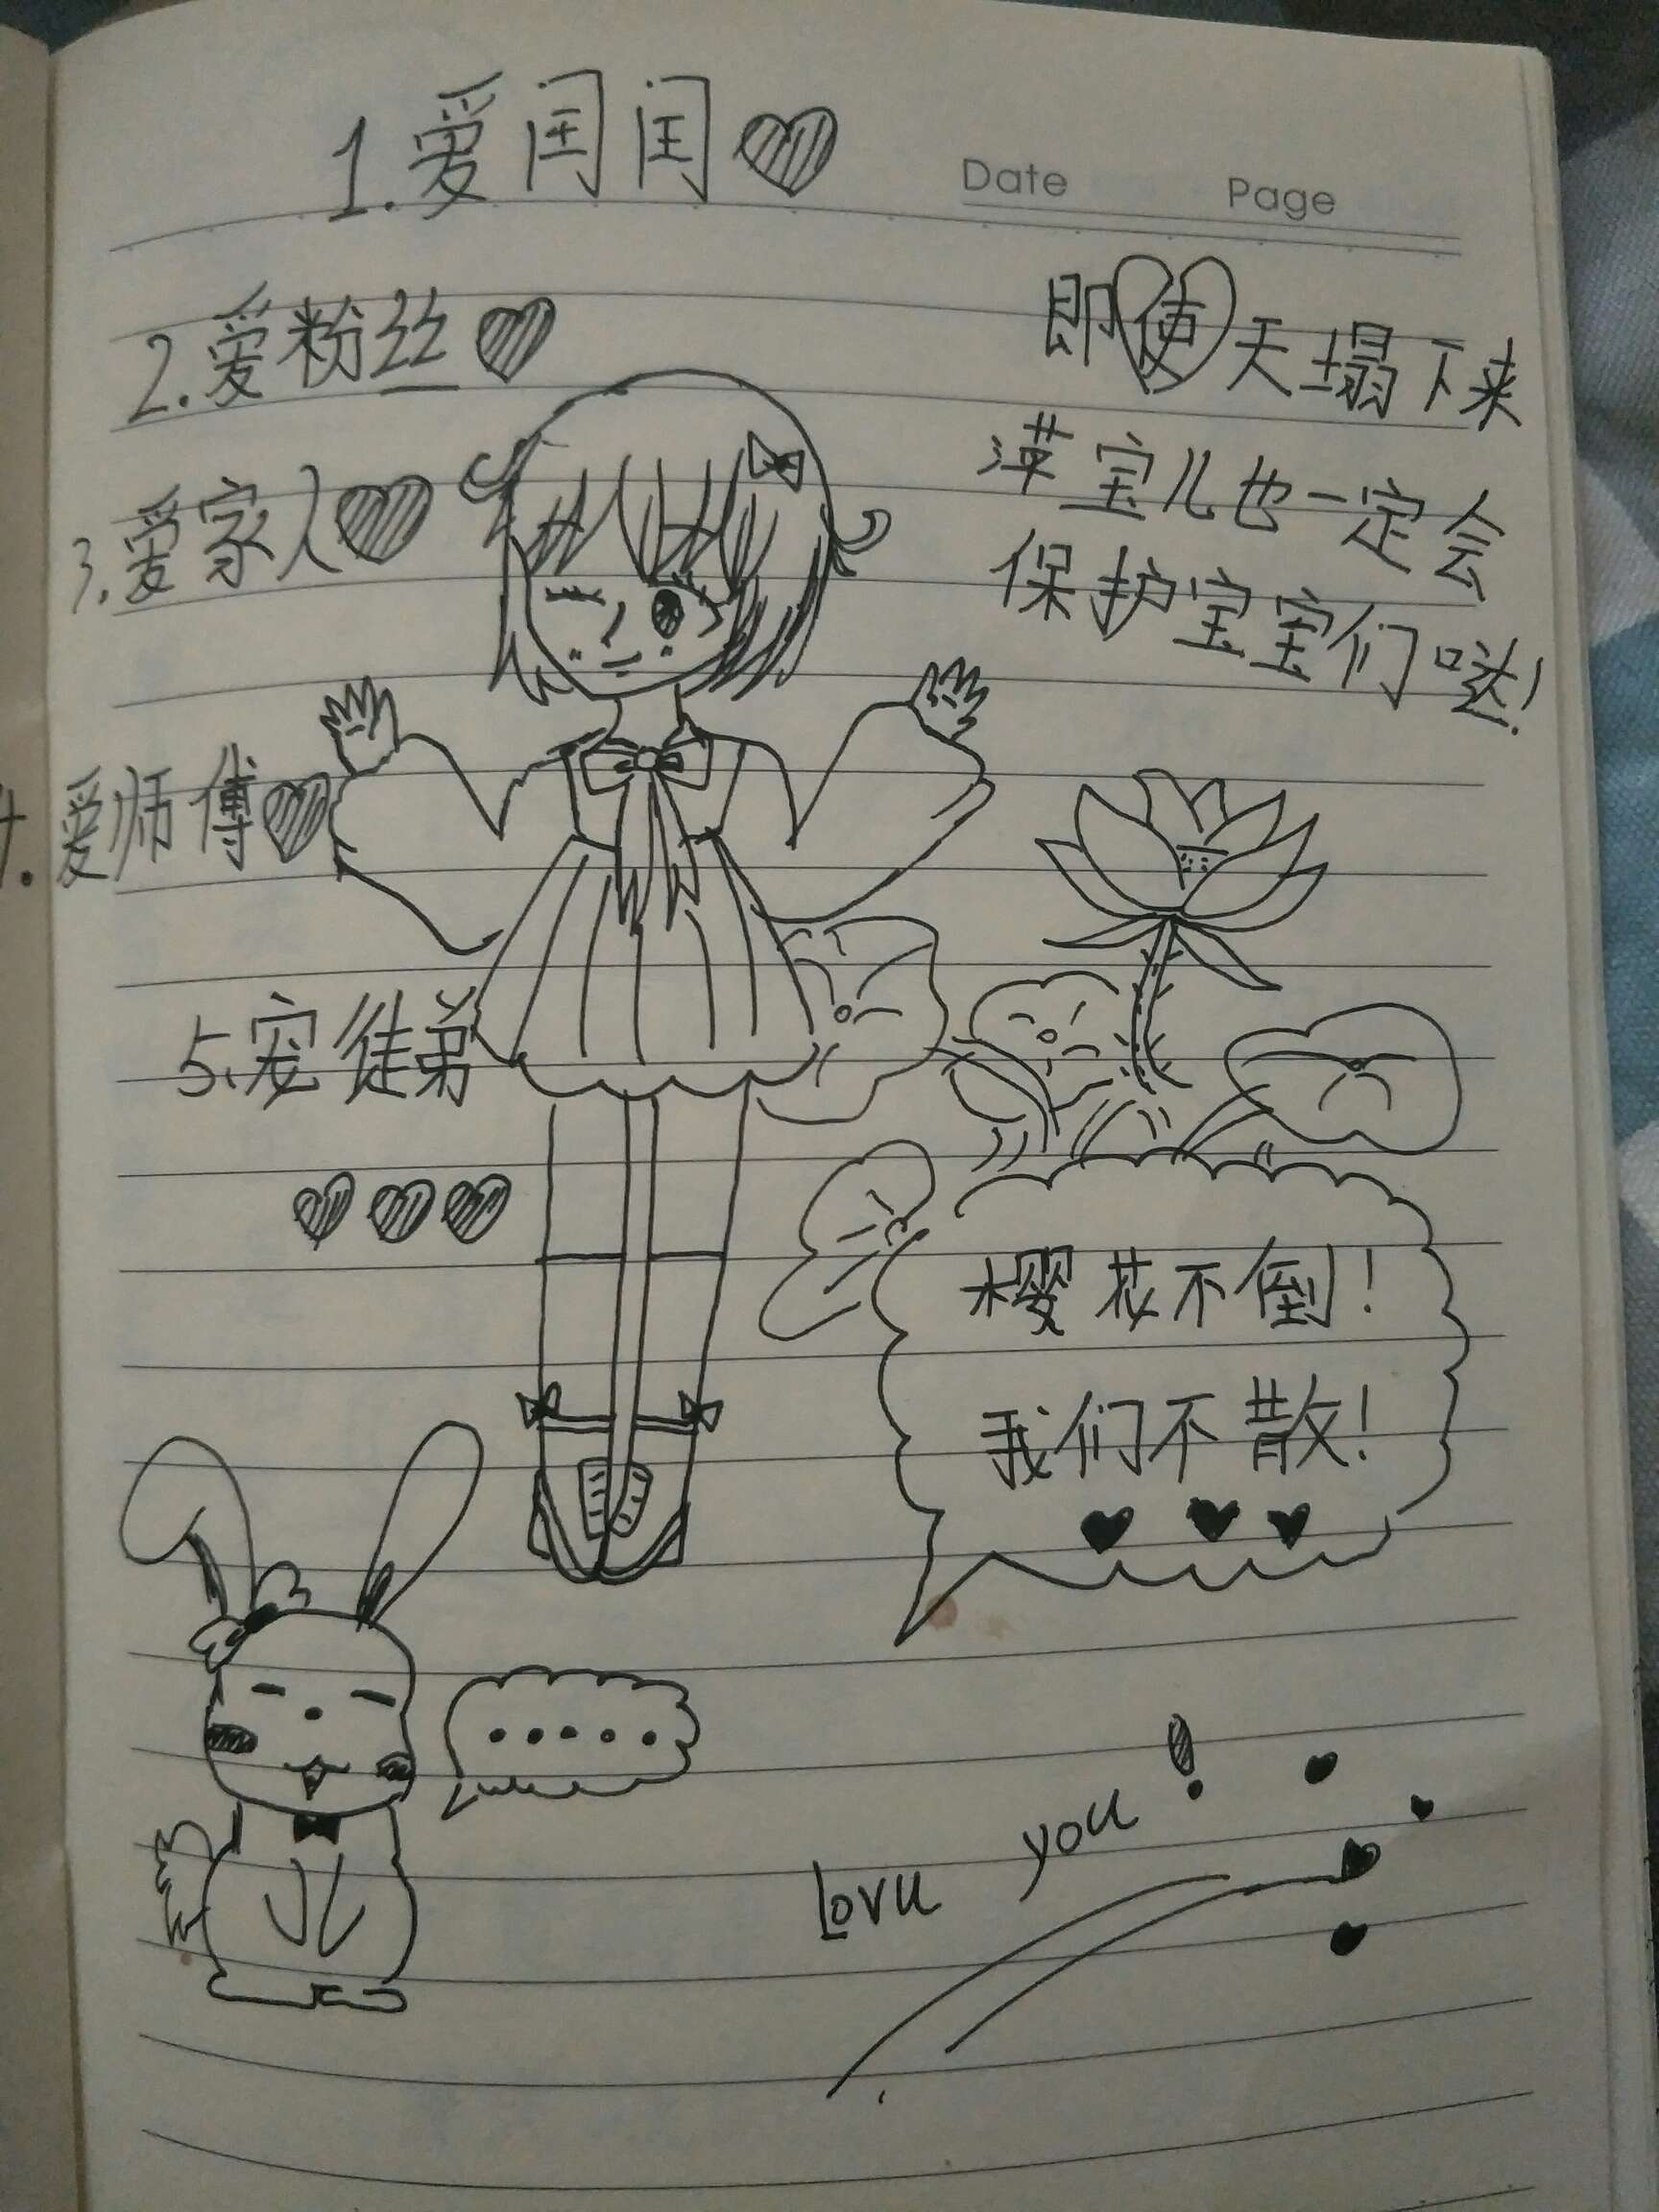 1.爱闰闰
Date Page
2.爱粉丝
3.爱家人
4.爱师傅
5.宠徒弟
即使天塌下来
萍宝儿也一定会
保护宝宝们哒!
樱花不倒!
我们不散!
.....
Lovu you!